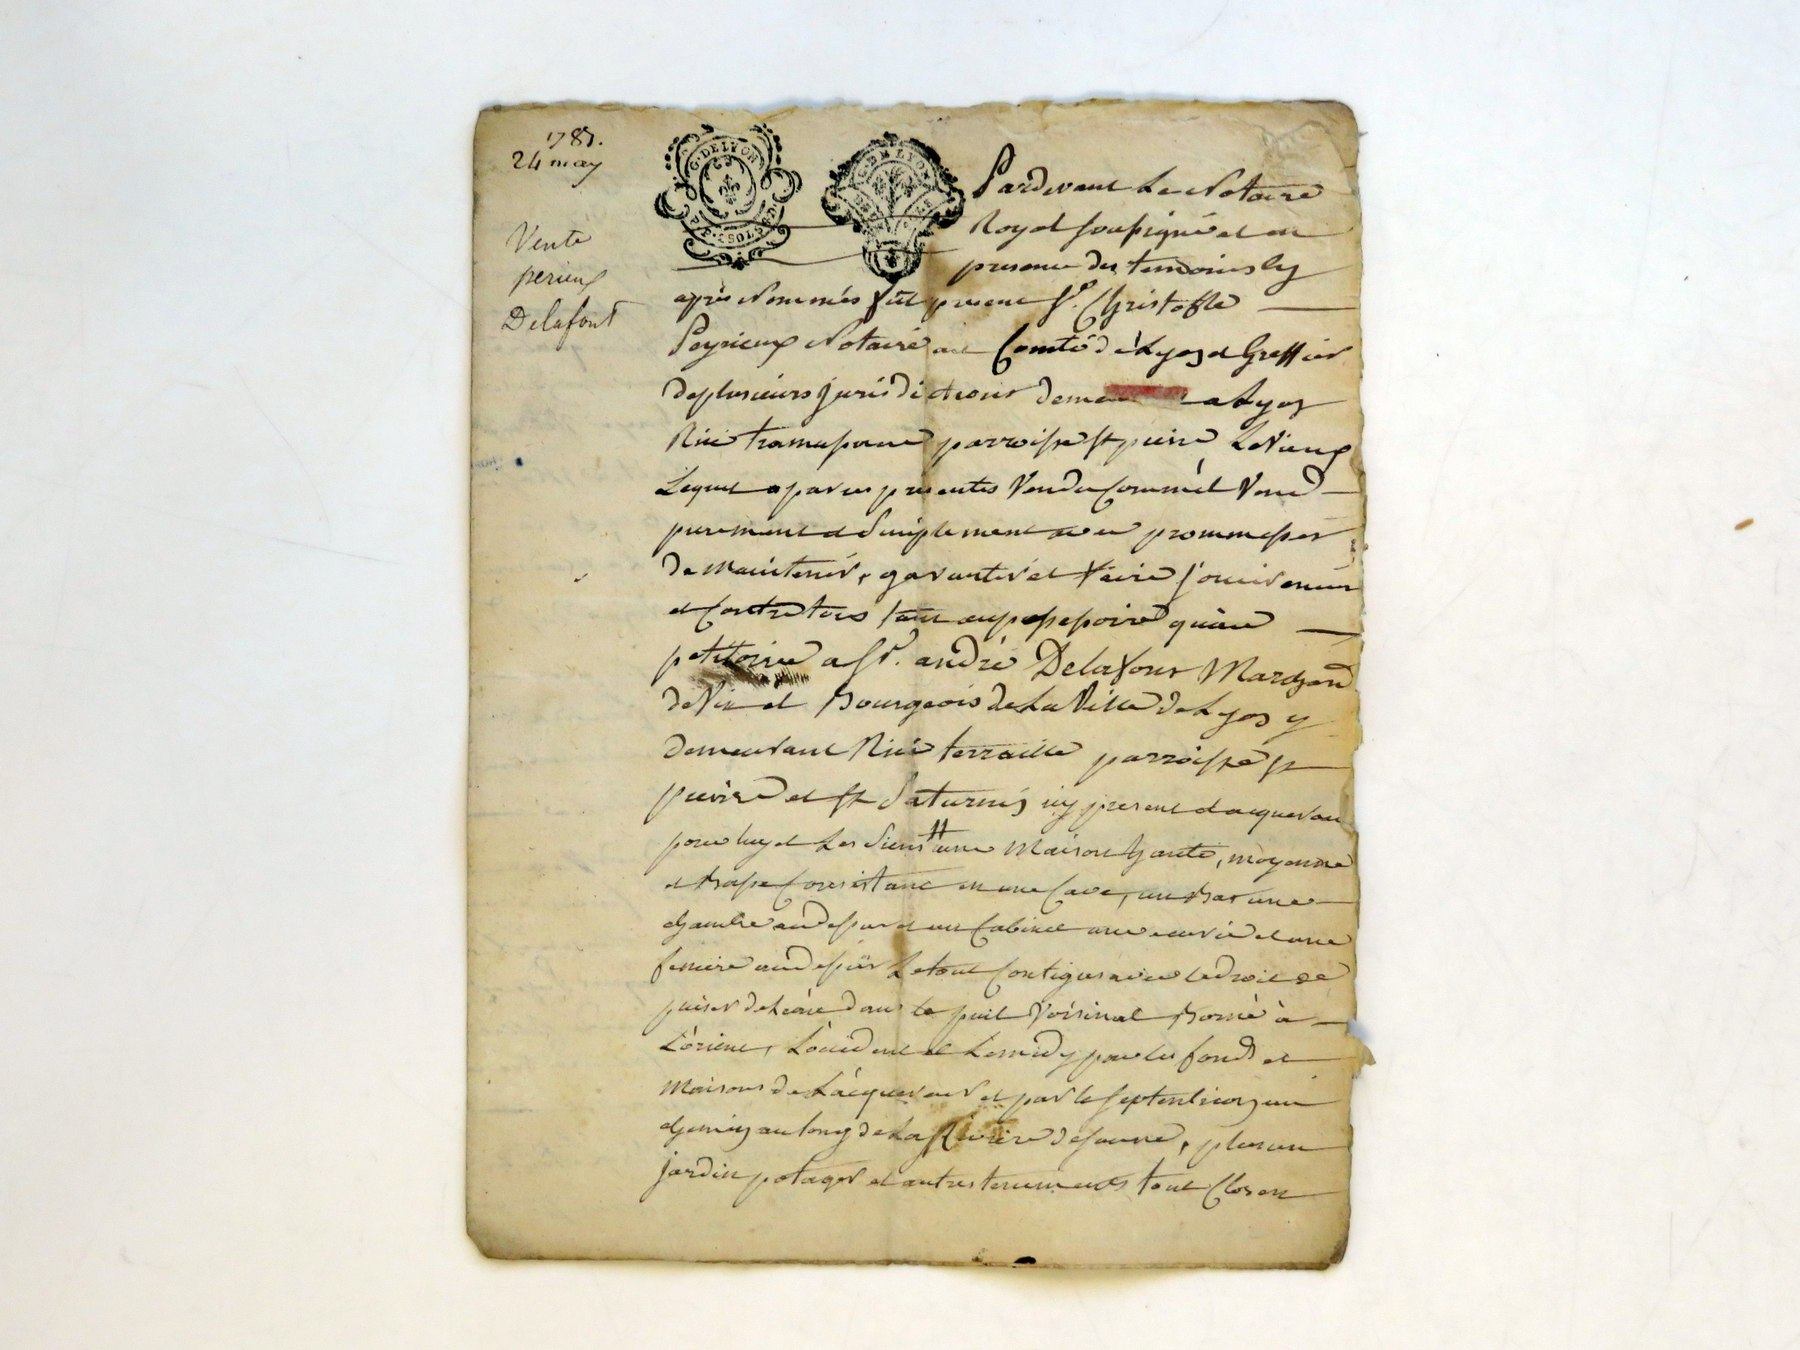 24 may
Vente
perieux
Delafont
G. DE LYON
SOLS
Pardevant Le Notaire
Royal soussigné et en
presence des temoins cy
après Nommés fut present Sr. Christofle
Peyrieux Notaire au Comté de Lyon et Greffier
de plusieurs jurisdictions a Lyon
Rüe parroisse st pierre Le Vieux
Lequel a par ces presentes Vendu Comme il Vend
purement et Simplement avec promesses
de Maintenir, garantir et faire
et Contre tous tant au possessoire qu'au
petitoire a Sr. andré Delafont Marchand
de Vin et Bourgeois de La Ville de Lyon y
demeurant Rüe terraille parroisse st
pierre et st Saturnin icy present et acquereur
pour luy et Les Siens une Maison haute, moyenne
et Basse Consistant en une Cave, un Bas une
chambre au dessus et un Cabinet une ecurie et une
feniere au dessus Le tout Contigu avec le droit de
puiser de L'eau dans le puit Voisin Borné à
L'orient, L'occident et Le midy par les fonds et
Maisons de L'acquereur et par le septentrion un
chemin au long de La Riviere de saone, plus un
jardin potager et autres tenements tout Clos en